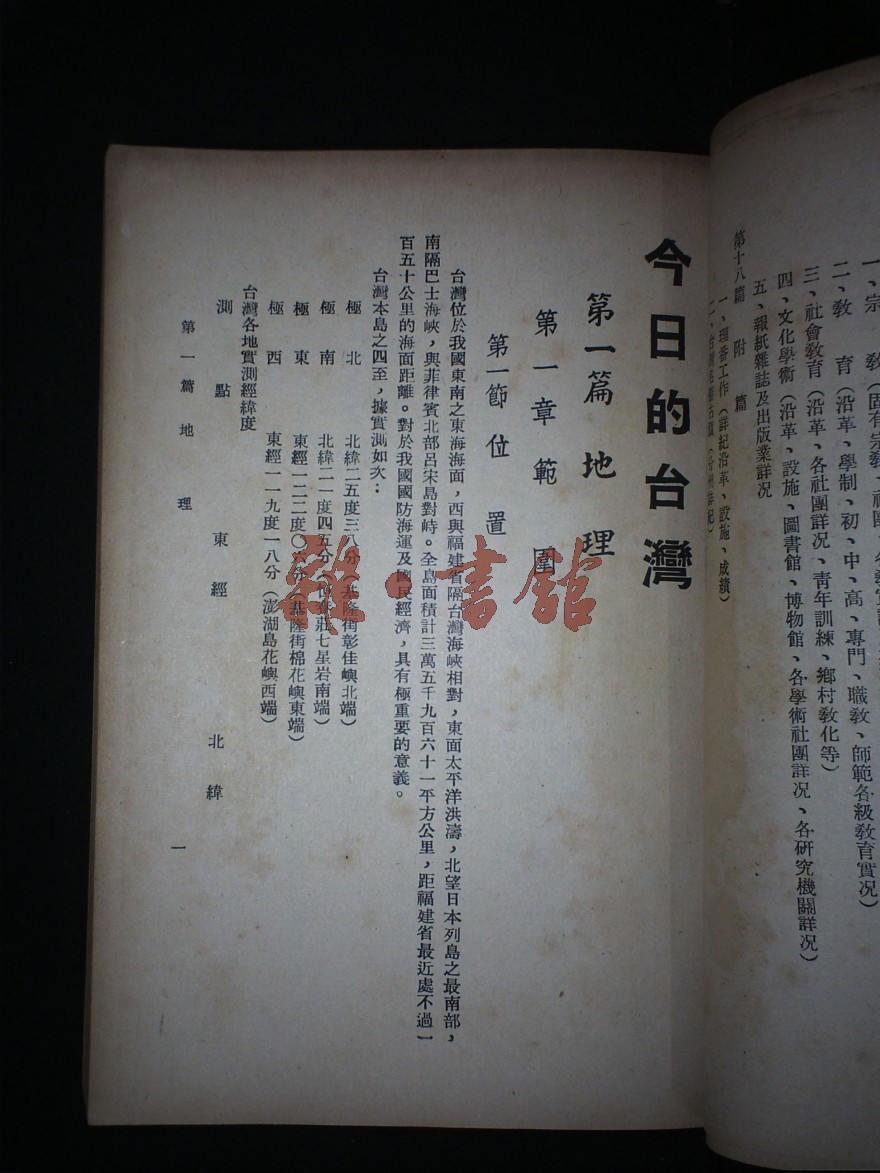 一、宗　教（固有宗教、
二、教　育（沿革、學制、初、中、高、專門、職教、師範各級教育實況）
三、社會教育（沿革、各社團詳況、青年訓練、鄉村教化等）
四、文化學術（沿革、設施、圖書館、博物館、各學術社團詳況、各研究機關詳況）
五、報紙雜誌及出版業詳況
第十八篇　附　篇
一、理番工作（詳紀沿革、設施、成績）
今日的台灣
第一篇　地　理
第一章　範　圍
第一節　位　置
台灣位於我國東南之東海海面，西與福建省隔台灣海峽相對，東面太平洋洪濤，北望日本列島之最南部，
南隔巴士海峽，與菲律賓北部呂宋島對峙。全島面積計三萬五千九百六十一平方公里，距福建省最近處不過一
百五十公里的海面距離。對於我國國防海運及國民經濟，具有極重要的意義。
台灣本島之四至，據實測如次：
極　北　北緯二五度三八分（基隆街彭佳嶼北端）
極　南　北緯二一度四五分　七星岩南端）
極　東　東經一二二度〇六分（基隆街棉花嶼東端）
極　西　東經一一九度一八分（澎湖島花嶼西端）
台灣各地實測經緯度
測　點　東　經　北　緯
第一篇　地　理　一
雜·書館